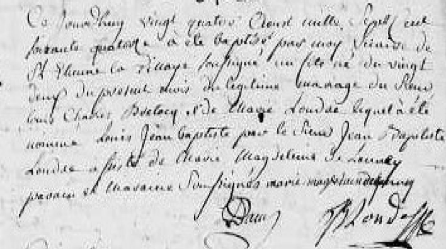 Ce jourdhuy vingt quatre daoust mille sept cent
soixante quatorze a été baptisé par moy vicaire de
St Etienne la Tillaye soussigné un fils né du vingt
deux du present mois du légitime mariage du Sieur
Louis Charles et de Marie Londe lequel a été
nommé Louis Jean baptiste par le Sieur Jean Baptiste
Londe assisté de Marie Magdeleine de Launey
parain et Maraine Soussignés marie magdelaine
Londe